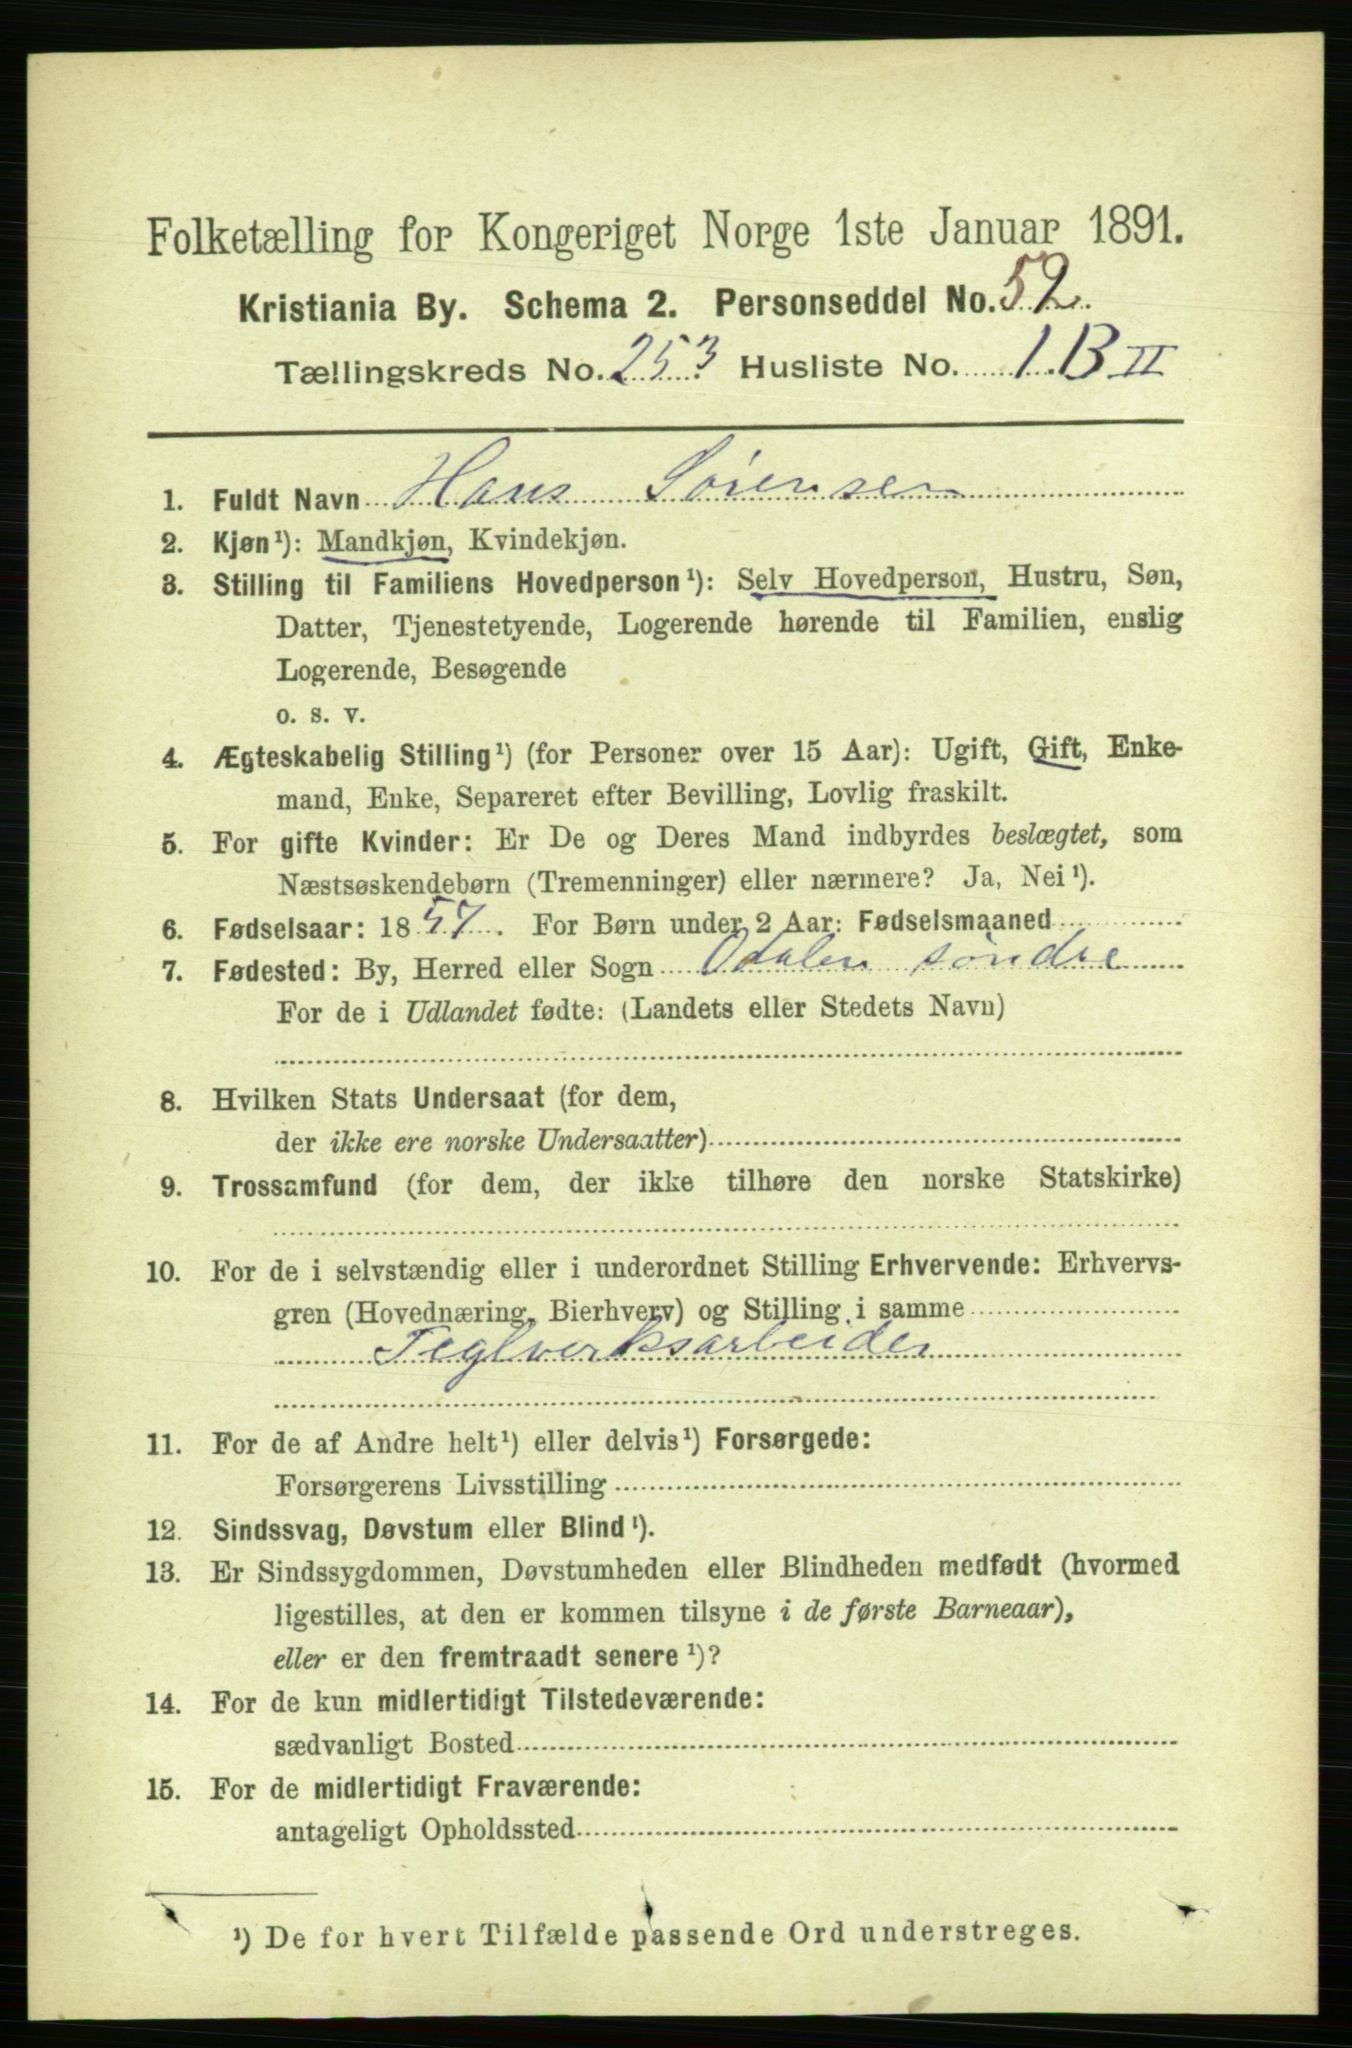 Folketælling for Kongeriget Norge 1ste Januar 1891.
Kristiania By. Schema 2. Personseddel No. 52.
Tællingskreds No. 253 Husliste No. 1.B II
1. Fuldt Navn Hans Sørensen
2. Kjøn¹): Mandkjøn, Kvindekjøn.
3. Stilling til Familiens Hovedperson¹): Selv Hovedperson, Hustru, Søn,
Datter, Tjenestetyende, Logerende hørende til Familien, enslig
Logerende, Besøgende
o. s. v.
4. Ægteskabelig Stilling¹) (for Personer over 15 Aar): Ugift, Gift, Enke-
mand, Enke, Separeret efter Bevilling, Lovlig fraskilt.
5. For gifte Kvinder: Er De og Deres Mand indbyrdes beslægtet, som
Næstsøskendebørn (Tremenninger) eller nærmere? Ja, Nei¹).
6. Fødselsaar: 1857. For Børn under 2 Aar: Fødselsmaaned
7. Fødested: By, Herred eller Sogn Odalen søndre
For de i Udlandet fødte: (Landets eller Stedets Navn)
8. Hvilken Stats Undersaat (for dem,
der ikke ere norske Undersaatter)
9. Trossamfund (for dem, der ikke tilhøre den norske Statskirke)
10. For de i selvstændig eller i underordnet Stilling Erhvervende: Erhvervs-
gren (Hovednæring, Bierhverv) og Stilling i samme
Teglverksarbeider
11. For de af Andre helt¹) eller delvis¹) Forsørgede:
Forsørgerens Livsstilling
12. Sindssvag, Døvstum eller Blind¹).
13. Er Sindssygdommen, Døvstumheden eller Blindheden medfødt (hvormed
ligestilles, at den er kommen tilsyne i de første Barneaar),
eller er den fremtraadt senere¹)?
14. For de kun midlertidigt Tilstedeværende:
sædvanligt Bosted
15. For de midlertidigt Fraværende:
antageligt Opholdssted
¹) De for hvert Tilfælde passende Ord understreges.